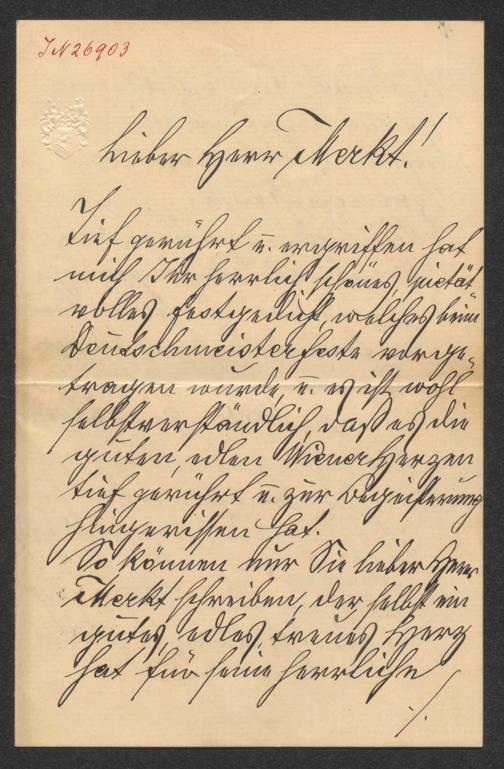 IN 26903
Lieber Herr Merkt!
Tief gerührt u. ergriffen hat
mich Ihr herrlich schönes, pietät
volles Festgedicht, welches beim
Deutschmeisterfeste vorge-
tragen wurde, u. es ist wohl
selbstverständlich, daß es die
guten, edlen Wiener Herzen
tief gerührt u. zur Begeisterung
hingerissen hat.
So können nur Sie lieber Herr
Merkt schreiben, der selbst ein
gutes, edles, treues Herz
hat für seine herrliche
./.